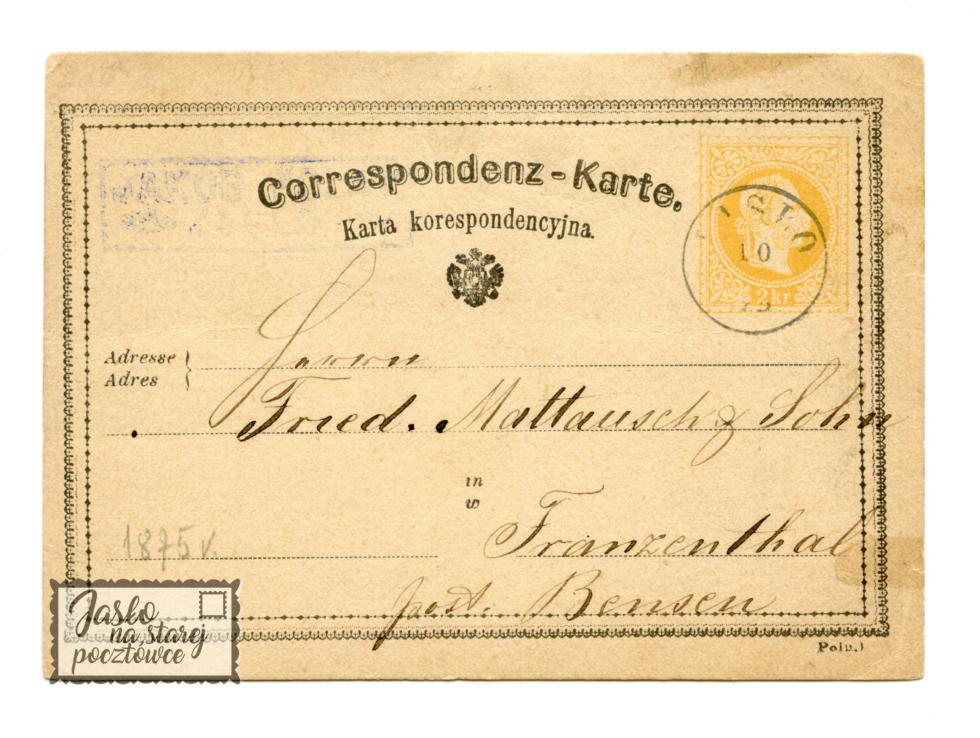 Correspondenz-Karte.
Karta korespondencyjna.
10
2 kr.
Adresse
Adres
Herrn
Fried. Mattausch & Sohn
in
w
Franzenthal
post. Bensen
1875 r.
Poln.)
Jasło
na starej
pocztówce